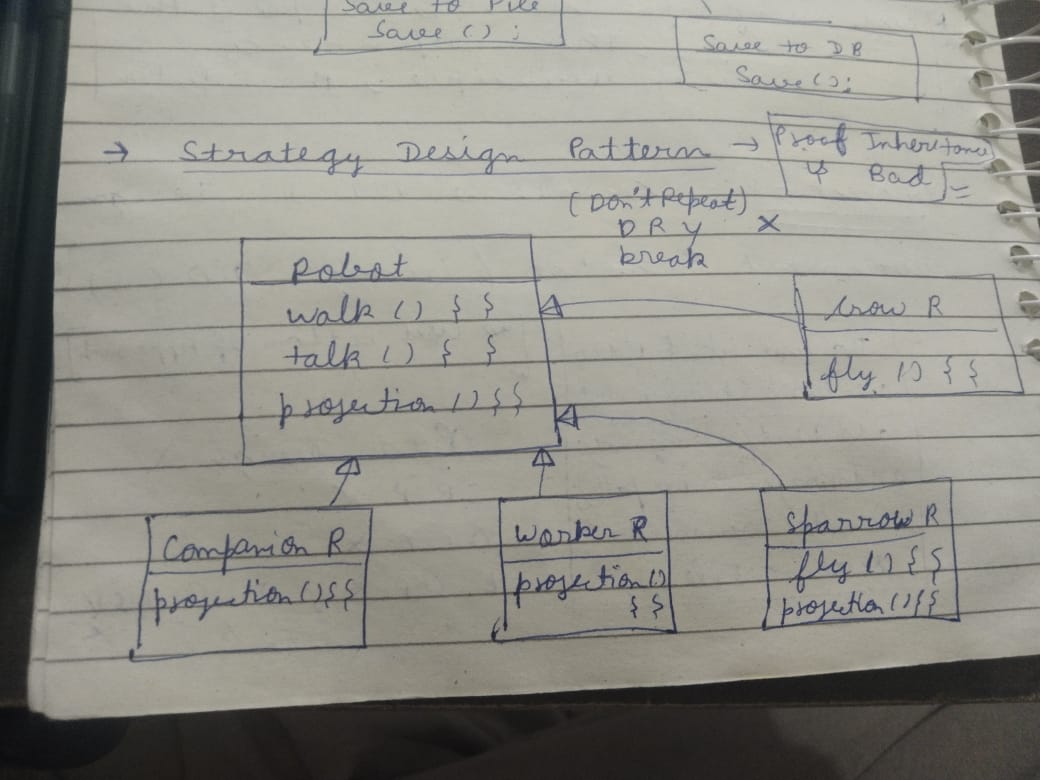 Save to File
Save ( ) ;
Save to DB
Save ( ) ;
→ Strategy Design Pattern → Proof Inheritance
is Bad
(Don't Repeat)
DRY ×
break
Robot
walk ( ) { }
talk ( ) { }
projection ( ) { }
Crow R
fly ( ) { }
Companion R
projection ( ) { }
Worker R
projection ( )
{ }
Sparrow R
fly ( ) { }
projection ( ) { }